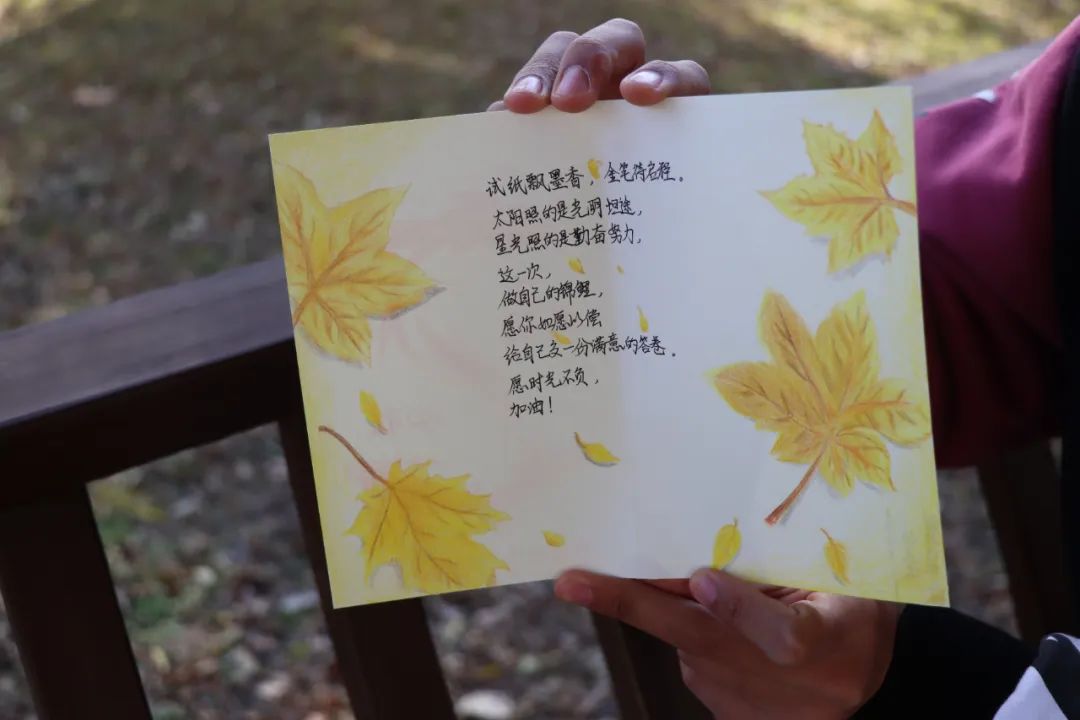 试纸飘墨香，金笔待启程。
太阳照的是光明坦途，
星光照的是勤奋努力，
这一次，
做自己的锦鲤，
愿你如愿以偿
给自己交一份满意的答卷。
愿时光不负，
加油！